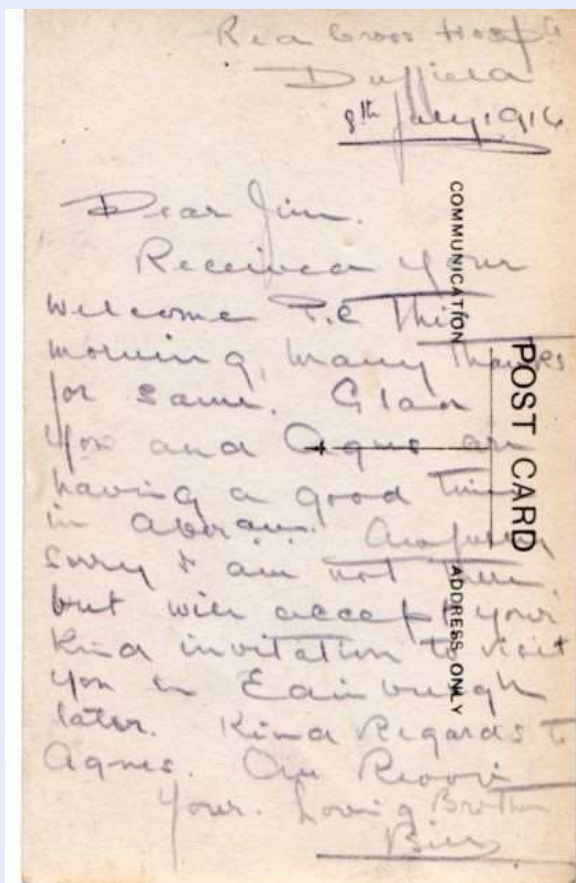 Red Cross Hospt
Duffield
8th July, 1916
Dear Jim.
Received your
welcome P.C this
morning, many thanks
for same. Glad
you and Agnes are
having a good time
in
sorry I am not there,
but will accept your
kind invitation to visit
you in Edinburgh
later. Kind Regards to
Agnes.
Your. Loving Brother
Bill
COMMUNICATION
POST CARD
ADDRESS ONLY